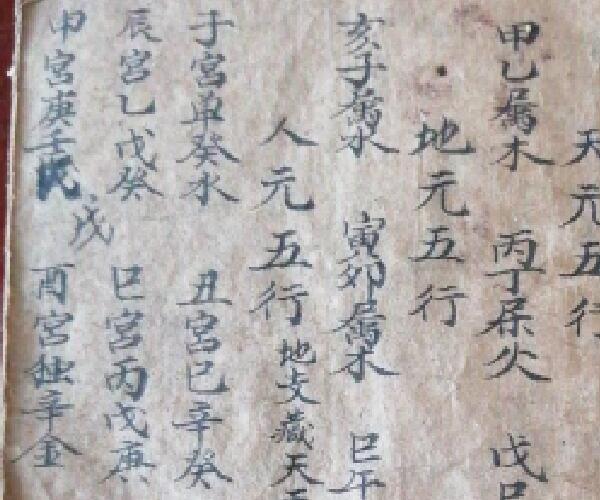 天元五行
甲乙属木 丙丁属火 戊己
地元五行
亥子属水 寅卯属木 巳午
人元五行 地支藏天
子宫单癸水 丑宫己辛癸
辰宫乙戊癸 巳宫丙戊庚
申宫庚壬戊 酉宫独辛金